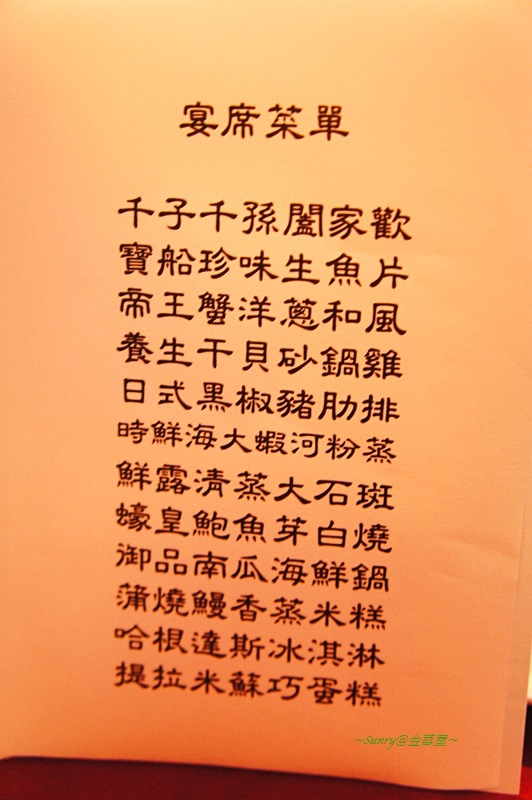 宴席菜單
千子千孫闔家歡
寶船珍味生魚片
帝王蟹洋蔥和風
養生干貝砂鍋雞
日式黑椒豬肋排
時鮮海大蝦河粉蒸
鮮露清蒸大石斑
蠔皇鮑魚芽白燒
御品南瓜海鮮鍋
蒲燒鰻香蒸米糕
哈根達斯冰淇淋
提拉米蘇巧蛋糕
~Sunry@金華屋~